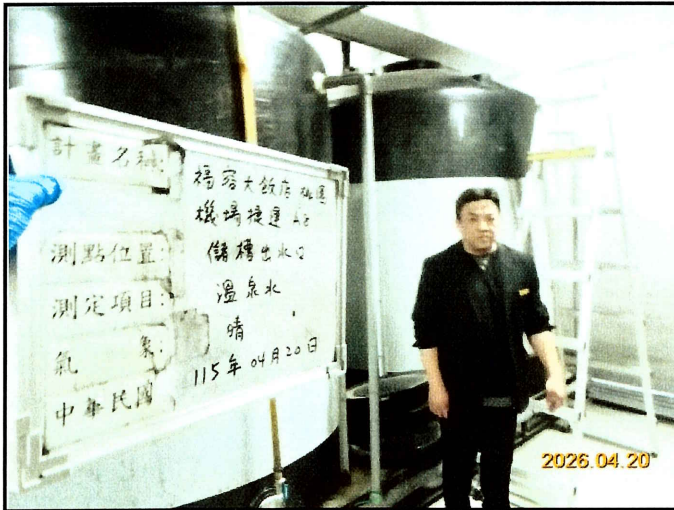 計畫名稱: 福容大飯店 桃園
機場捷運 A8
測點位置: 儲槽出水口
測定項目: 溫泉水
氣象: 晴
中華民國 115年 04月20日
2026.04.20